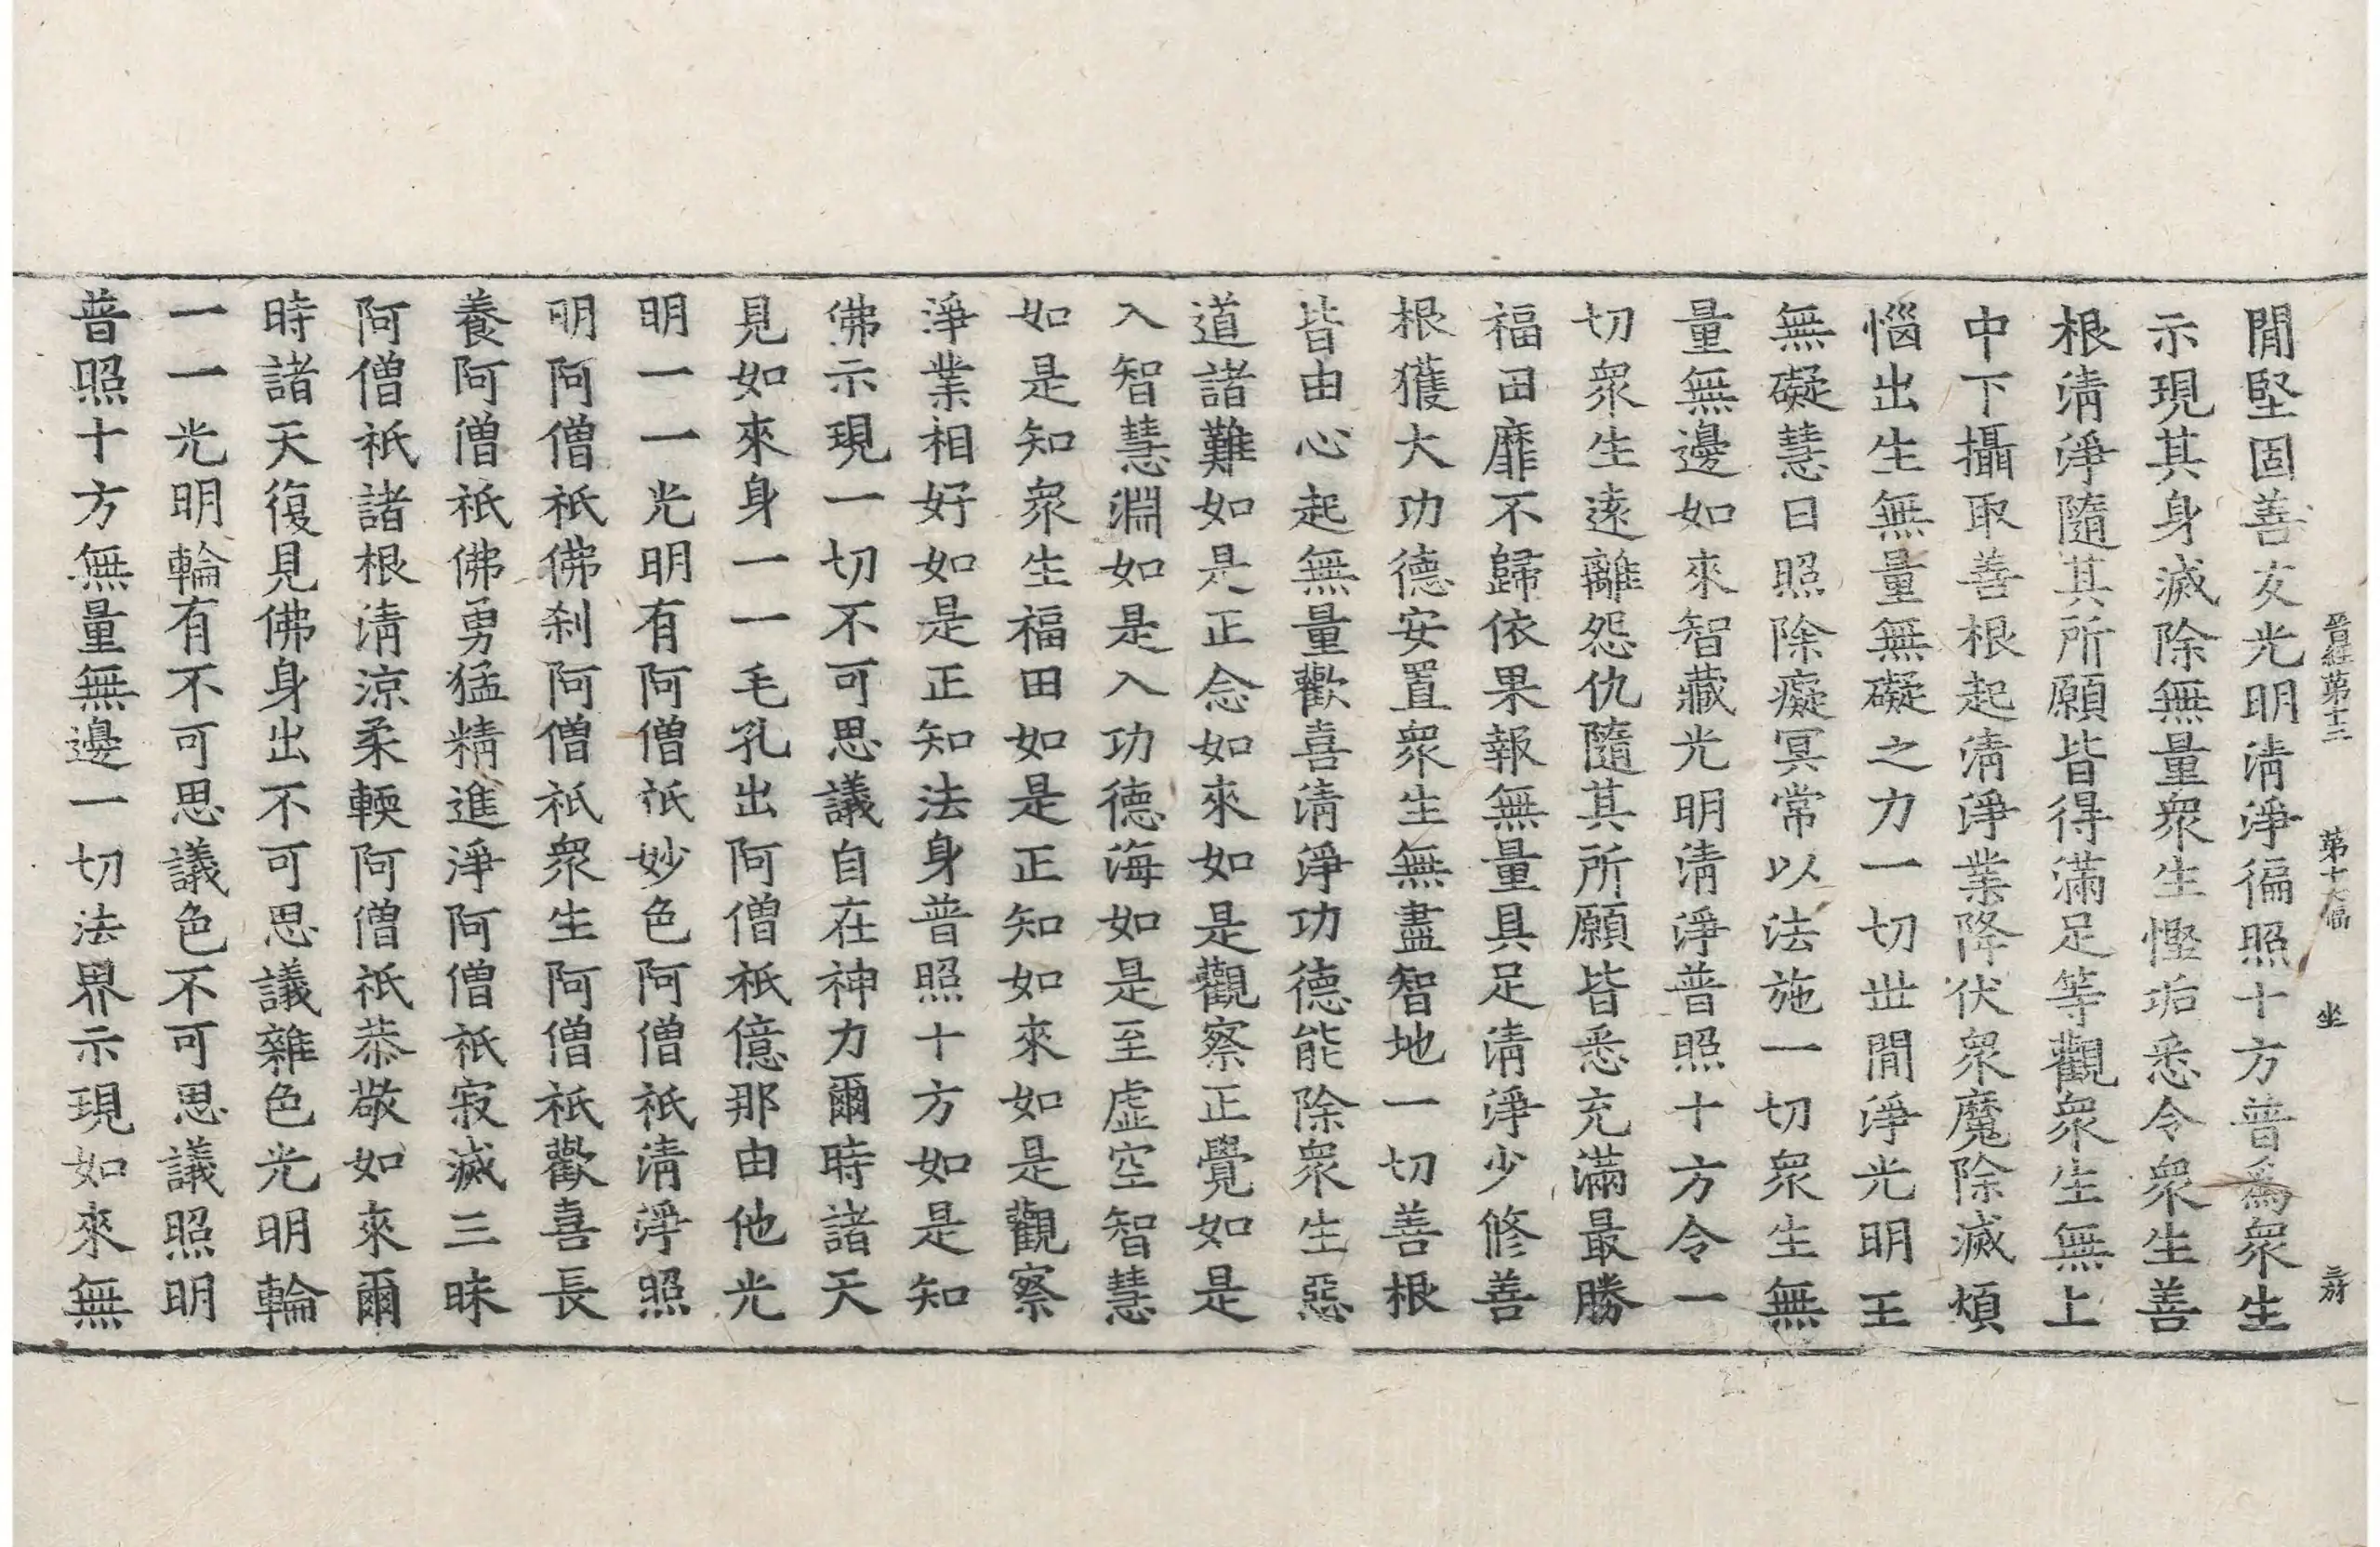 晉經第十三　第十六幅　坐
閒堅固善友光明淸淨徧照十方普爲衆生
示現其身滅除無量衆生慳垢悉令衆生善
根淸淨隨其所願皆得滿足等觀衆生無上
中下攝取善根起淸淨業降伏衆魔除滅煩
惱出生無量無礙之力一切世閒淨光明王
無礙慧日照除癡冥常以法施一切衆生無
量無邊如來智藏光明淸淨普照十方令一
切衆生遠離怨仇隨其所願皆悉充滿最勝
福田靡不歸依果報無量具足淸淨少修善
根獲大功德安置衆生無盡智地一切善根
皆由心起無量歡喜淸淨功德能除衆生惡
道諸難如是正念如來如是觀察正覺如是
入智慧淵如是入功德海如是至虛空智慧
如是知衆生福田如是正知如來如是觀察
淨業相好如是正知法身普照十方如是知
佛示現一切不可思議自在神力爾時諸天
見如來身一一毛孔出阿僧祇億那由他光
明一一光明有阿僧祇妙色阿僧祇淸淨照
明阿僧祇佛刹阿僧祇衆生阿僧祇歡喜長
養阿僧祇佛勇猛精進淨阿僧祇寂滅三昧
阿僧祇諸根淸涼柔輭阿僧祇恭敬如來爾
時諸天復見佛身出不可思議雜色光明輪
一一光明輪有不可思議色不可思議照明
普照十方無量無邊一切法界示現如來無